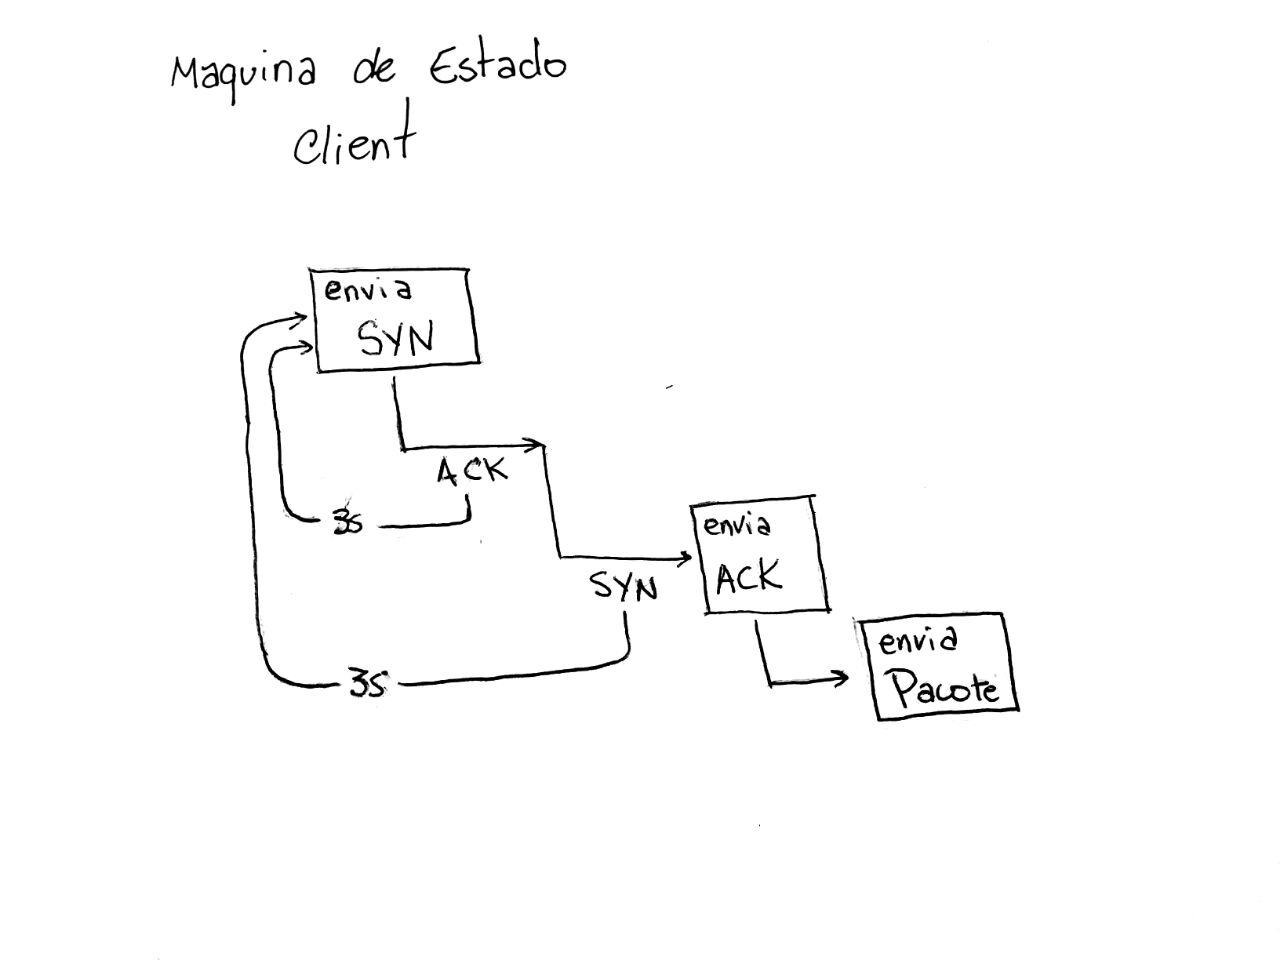 Maquina de Estado
Client
envia
SYN
ACK
3s
envia
ACK
SYN
3s
envia
Pacote